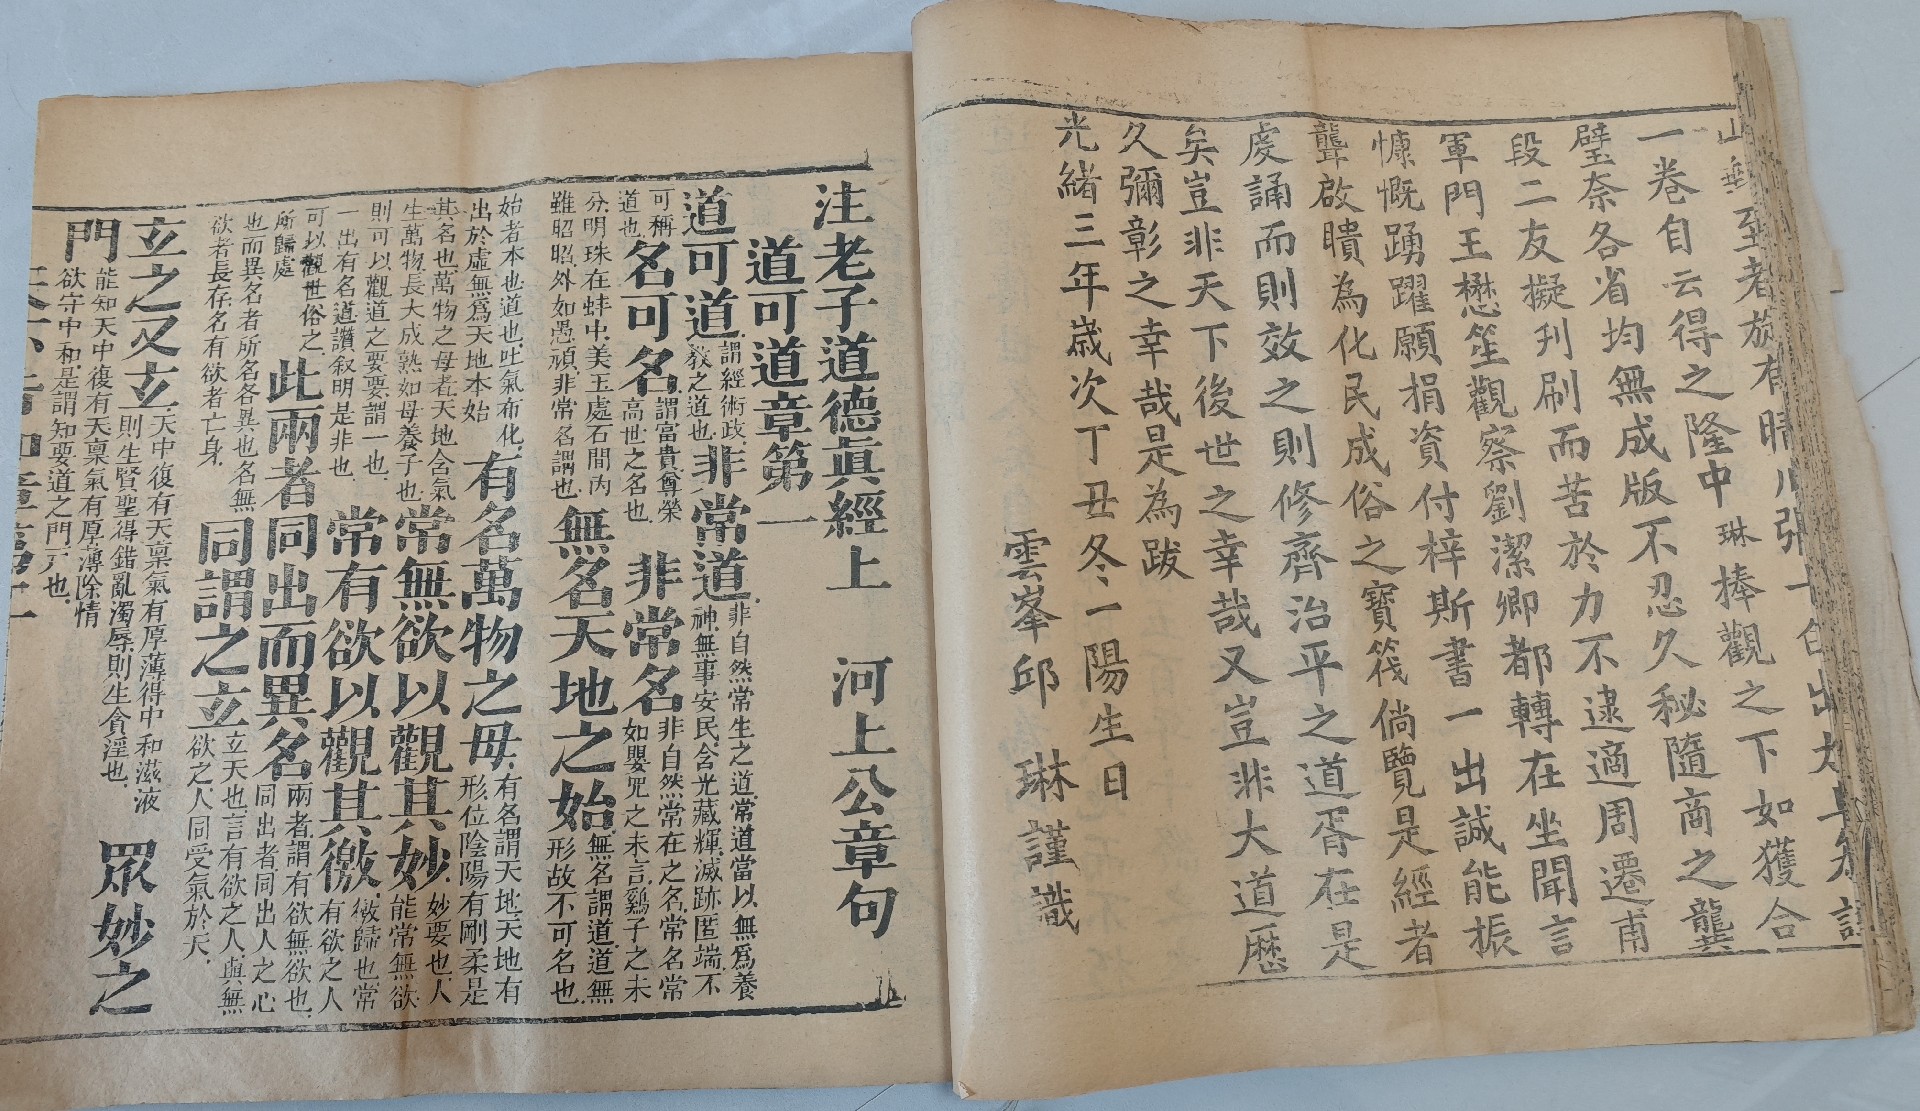 至者旋有晴川張
一卷自云得之隆中琳捧觀之下如獲合
璧奈各省均無成版不忍久秘隨商之龔
段二友擬刋刷而苦於力不逮適周遷甫
軍門王懋笙觀察劉潔卿都轉在坐聞言
慷慨踴躍願捐資付梓斯書一出誠能振
聾啟瞶為化民成俗之寶筏倘覽是經者
處誦而則效之則修齊治平之道胥在是
矣豈非天下後世之幸哉又豈非大道歷
久彌彰之幸哉是為跋
光緒三年歲次丁丑冬一陽生日
雲峯邱琳謹識
注老子道德眞經上 河上公章句
道可道章第一
道可道謂經術政教之道也非常道非自然常生之道常道當以無爲養神無事安民含光藏輝滅跡匿端不
可稱道也名可名謂富貴尊榮高世之名也非常名非自然常在之名常名當如嬰兒之未言鷄子之未
分明珠在蚌中美玉處石間內雖昭昭外如愚頑非常名謂也無名天地之始無名謂道道無形故不可名也
始者本也道也吐氣布化出於虛無爲天地本始有名萬物之母有名謂天地天地有形位陰陽有剛柔是
其名也萬物之母者天地含氣生萬物長大成熟如母養子也常無欲以觀其妙妙要也人能常無欲
則可以觀道之要要謂一也一出有名道讚叙明是非也常有欲以觀其徼徼歸也常有欲之人
可以觀世俗之所歸處此兩者同出而異名兩者謂有欲無欲也同出者同出人之心
也而異名者所名各異也名無欲者長存名有欲者亡身同謂之玄玄天也言有欲之人與無欲之人同受氣於天
玄之又玄天中復有天稟氣有厚薄得中和滋液則生賢聖得錯亂濁辱則生貪淫也眾妙之
門能知天中復有天稟氣有厚薄除情欲守中和是謂知要道之門戶也